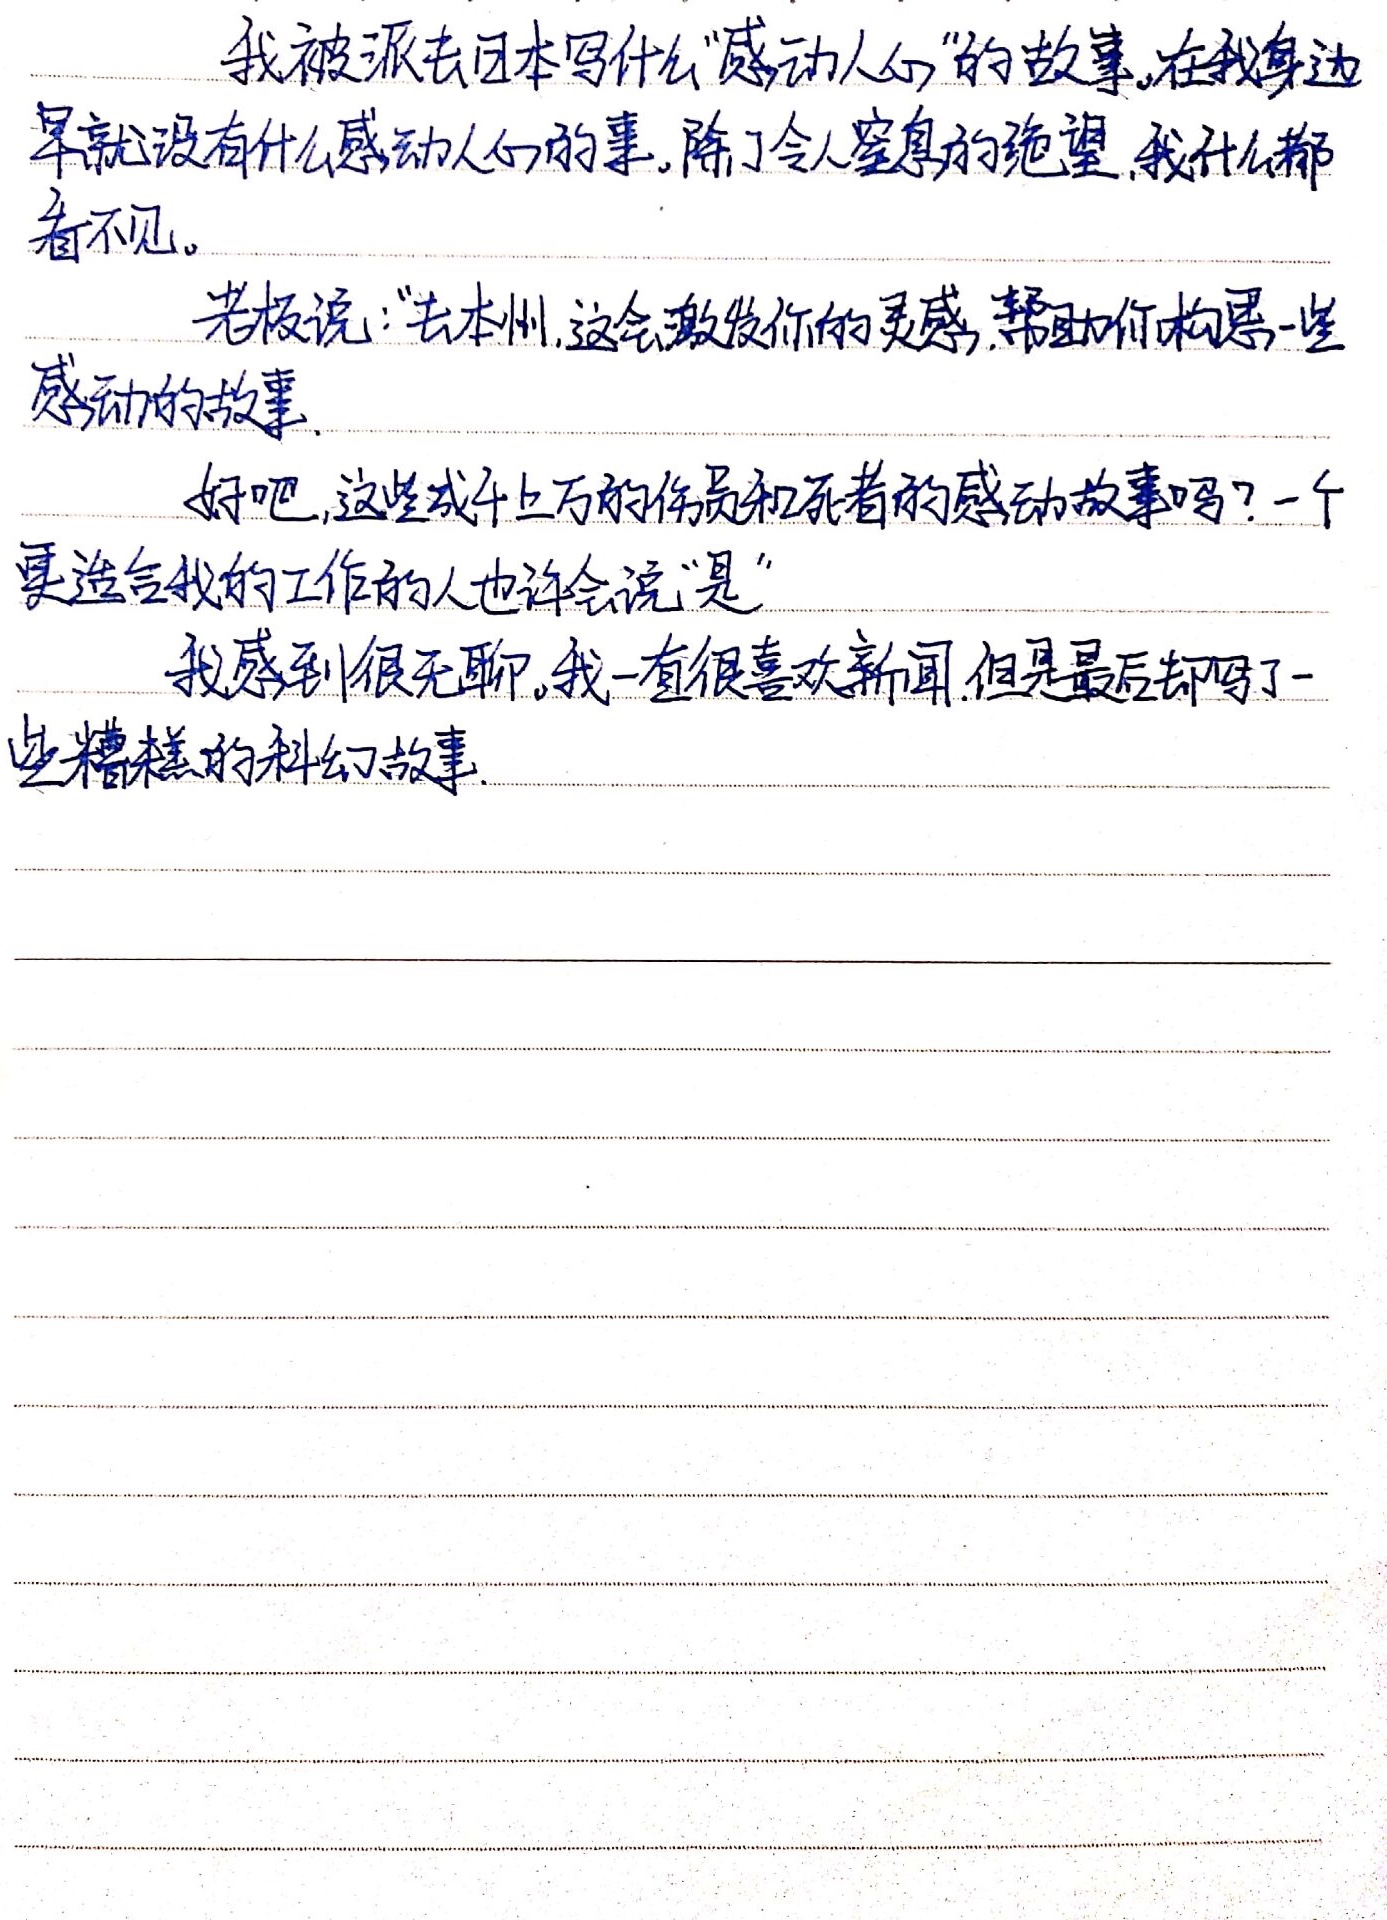 我被派去日本写什么“感动人心”的故事。在我身边
早就没有什么感动人心的事。除了令人窒息的绝望,我什么都
看不见。
老板说:“去本州,这会激发你的灵感,帮助你构思一些
感动的故事.
好吧,这些成千上万的伤员和死者的感动故事吗?一个
更适合我的工作的人也许会说“是”
我感到很无聊。我一直很喜欢新闻.但是最后却写了一
些糟糕的科幻故事.